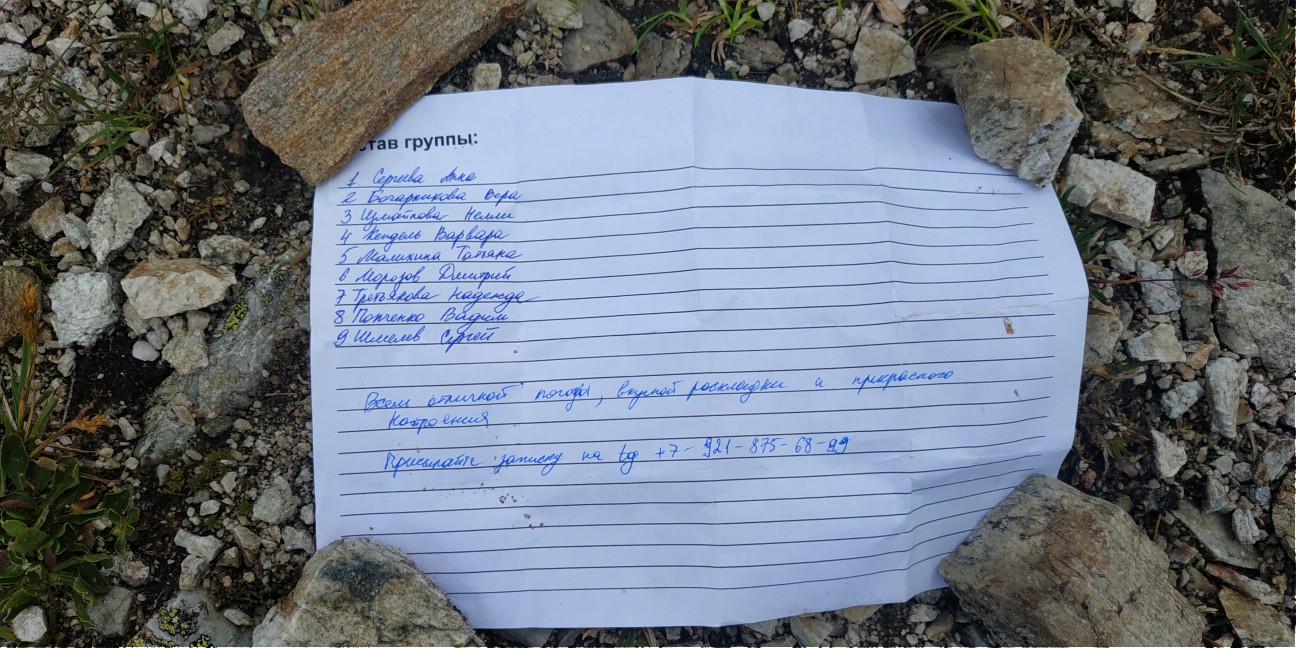 став группы:
1 Сергеева Анна
2 Бочарникова Вера
3 Измайлова Нелли
4 Кендель Варвара
5 Маликина Татьяна
6 Морозов Дмитрий
7 Третьякова Надежда
8 Попченко Вадим
9 Шмелев Сергей
Всем отличной погоды, вкусной раскладки и прекрасного
настроения
Присылайте записку на tg +7-921-875-68-99